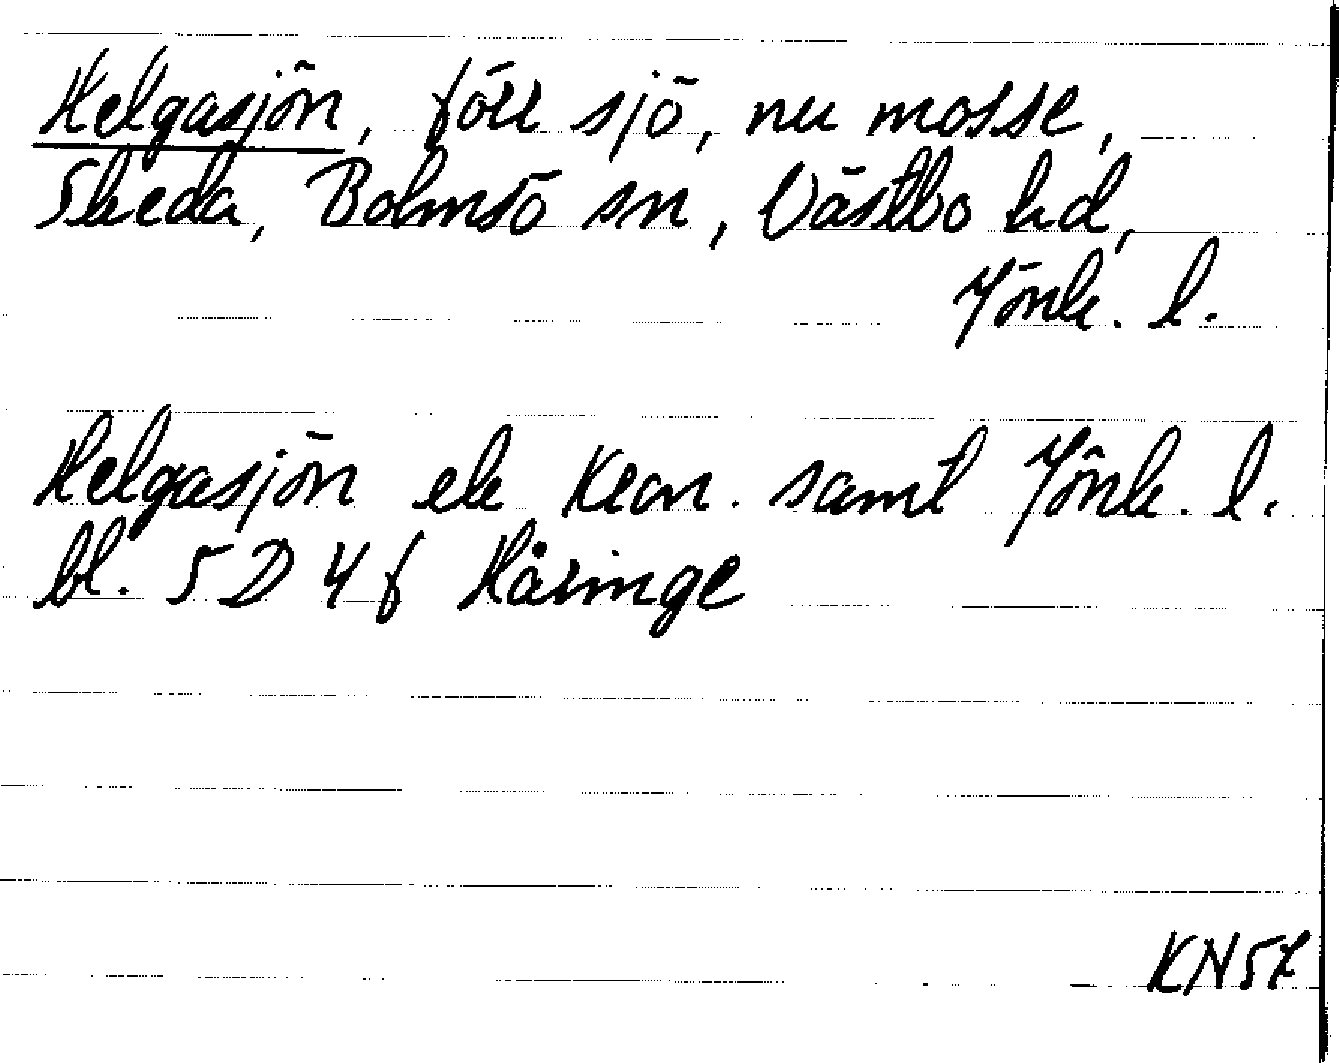 Helgasjön, förr sjö, nu mosse,
Skeda, Bolmsö sn, Västbo hd,
Jönk. l.
Helgasjön ek Kron. samt Jönk. l.
bl. 5 D 4 f Håringe
KN57